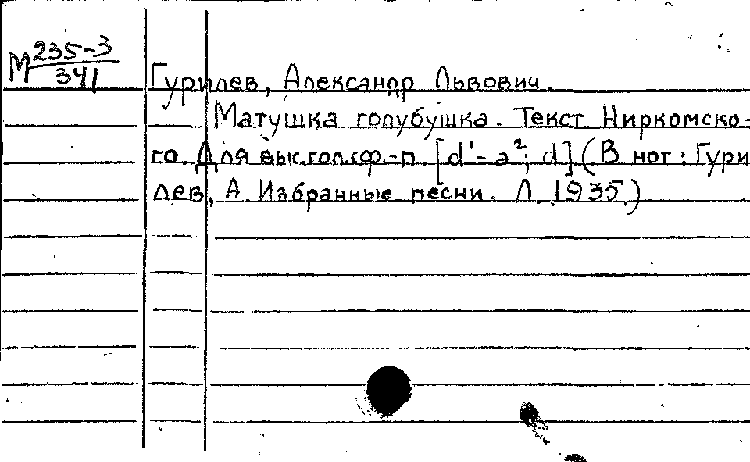 М 235-3
341
Гурилев, Александр Львович.
Матушка голубушка. Текст Ниркомско-
го. Для выс. гол. с ф.-п. [d¹-a²; d] (В нот: Гури
лев, А. Избранные песни. Л. 1935.)